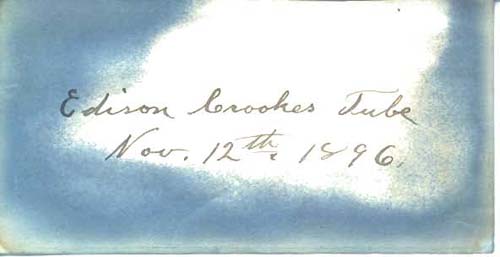 Edison Crookes Tube
Nov. 12th. 1896.